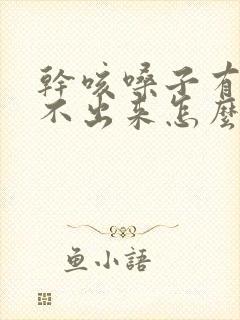 幹咳嗓子有
不出来怎麼
鱼小語